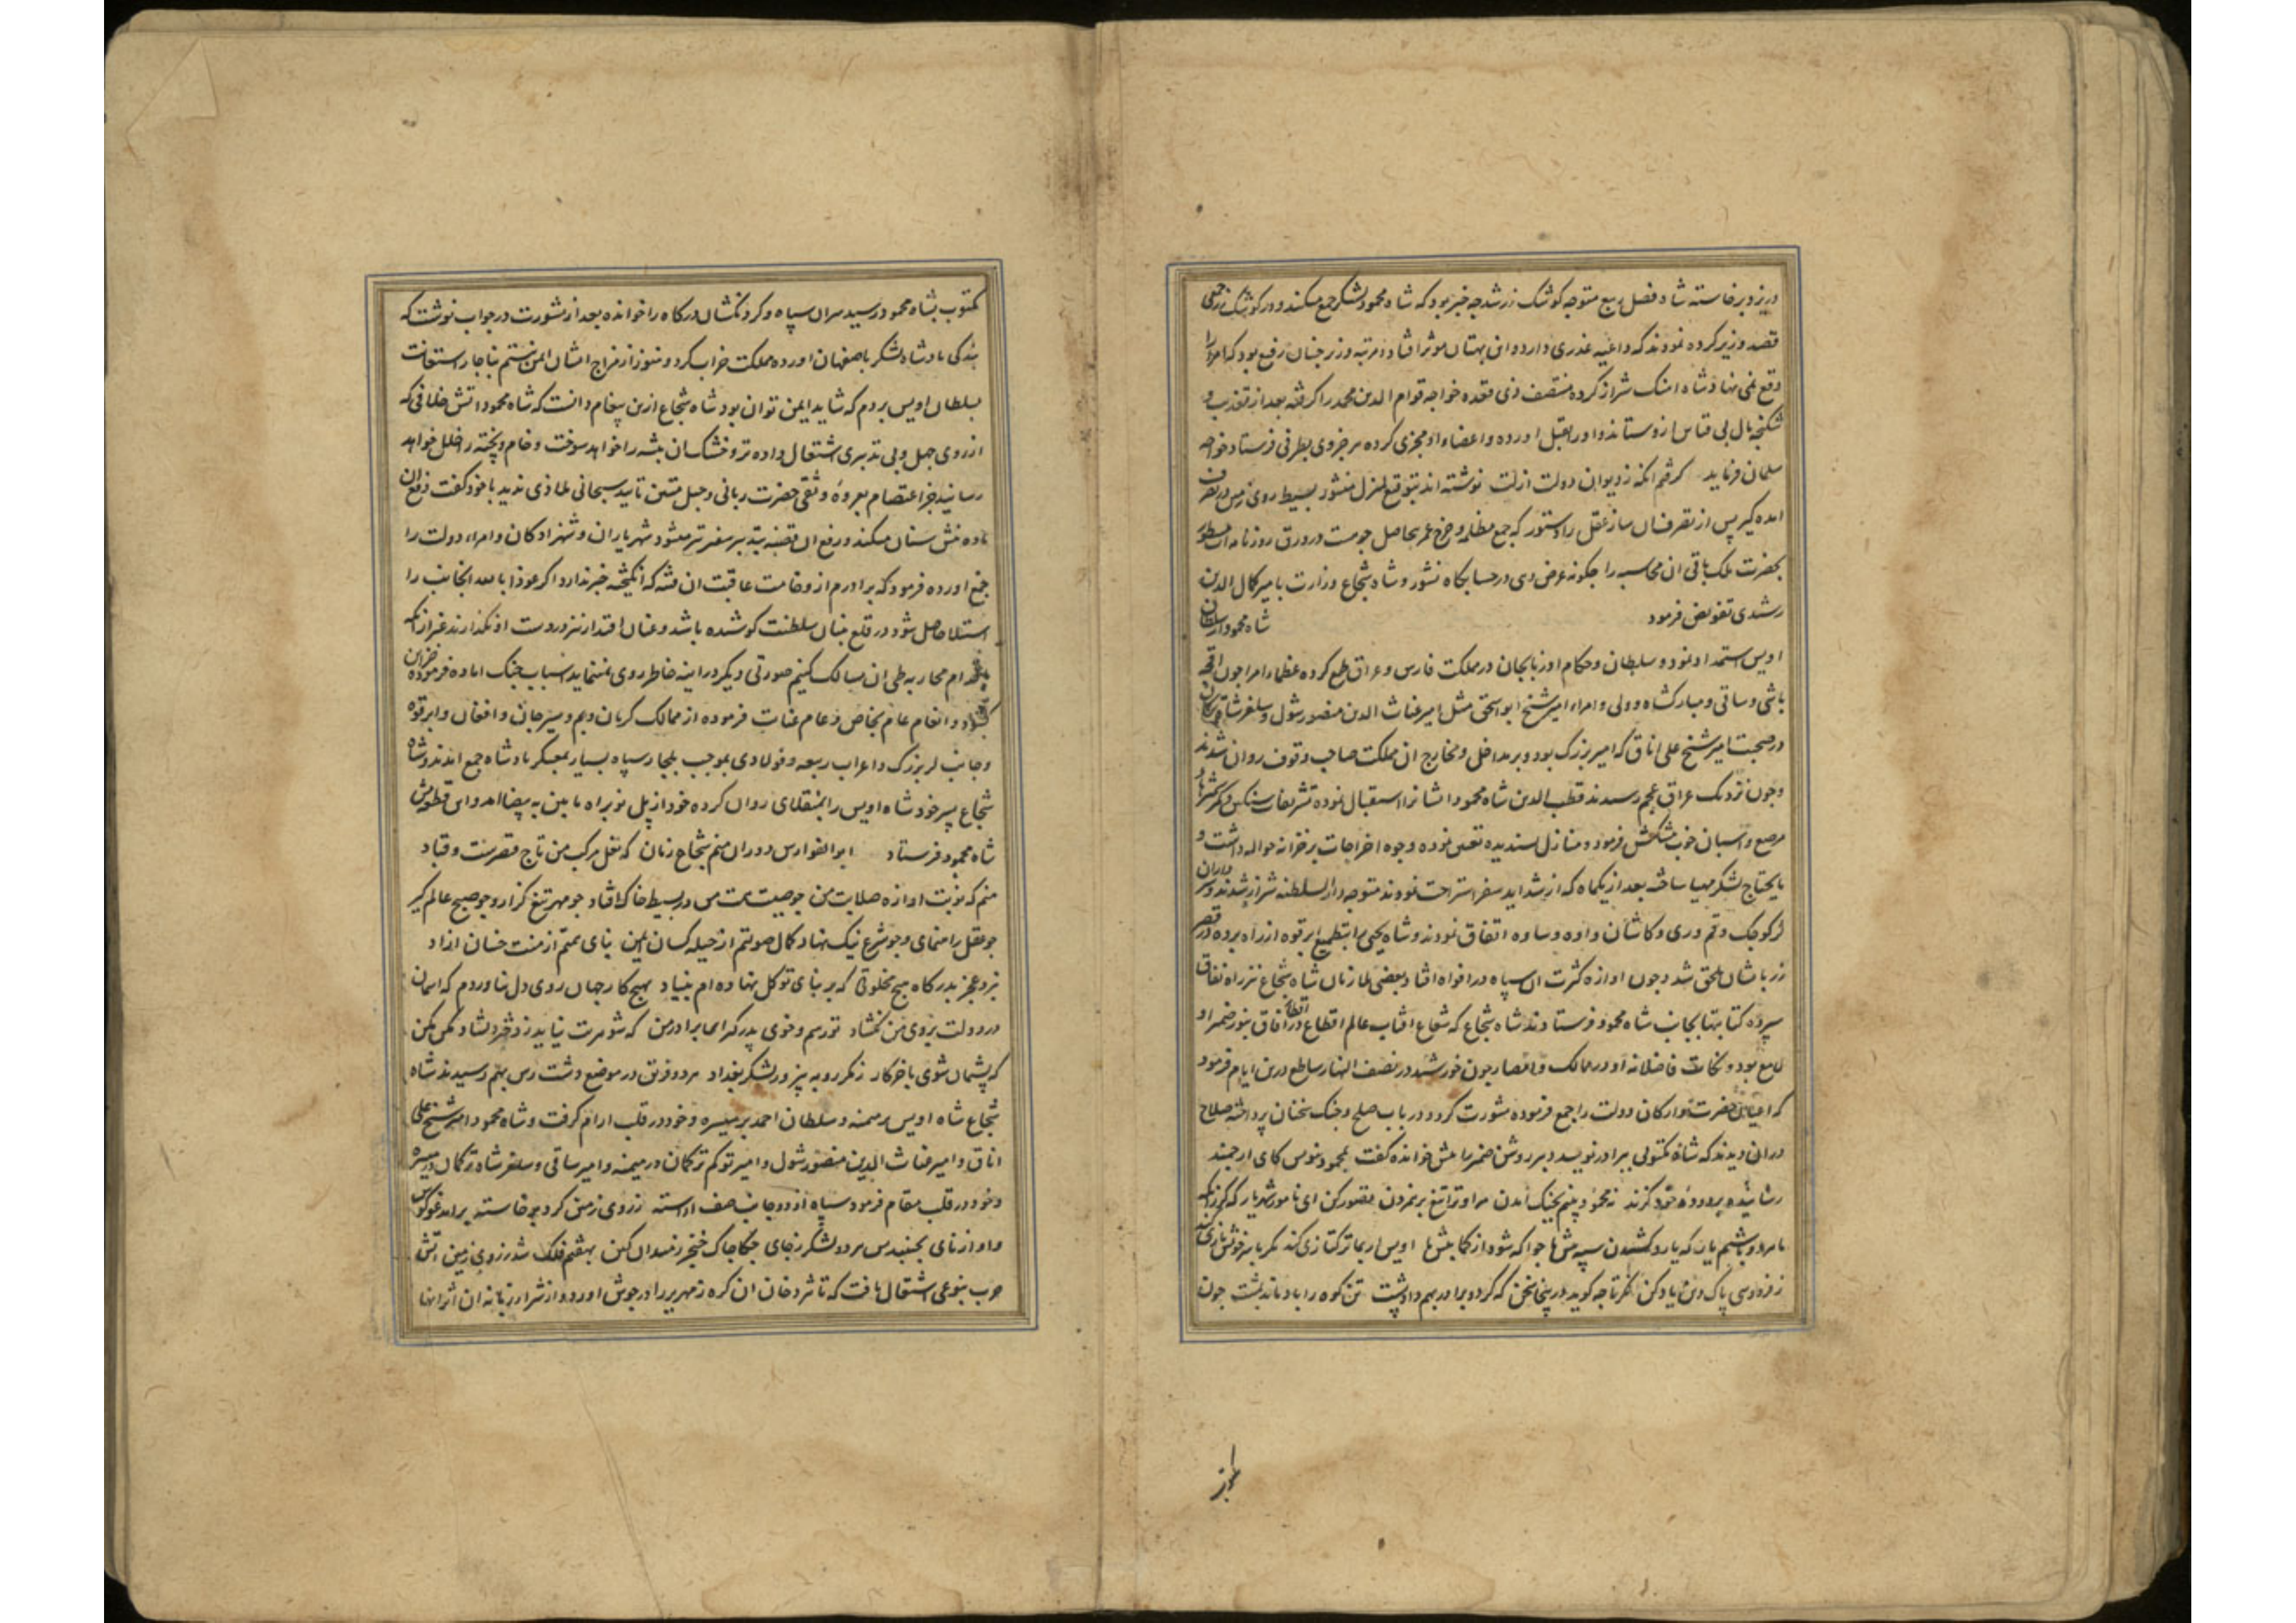 در یزد برخاسته شاه فصل ربیع متوجه کوشک زر شد چه خبر بود که شاه محمود لشکر جمع میکند و در کوشک زر جمعی
قصد وزیر کرده نمودند که داعیه غدری دارد و این بهتان موثر افتاد و مرتبه وزیر چنان رفیع بود که امرا را
وقع نمی نهاد شاه اهنک شیراز کرده منتصف ذی قعده خواجه قوام الدین محمد را گرفته بعد از تعذیب و
شکنجه مال بی قیاس ازو ستاندند و او را بقتل اورده و اعضاء او مجزی کرده هر جزوی بطرفی فرستاد و خواجه
سلمان فرماید گرفتم انکه ز دیوان دولت ازلت نوشته اند بتوقیع لم یزل منشور بسیط روی زمین در تصرف
امده گیر پس از تصرف ان ساز عقل را دستور که جمع مظلمه و خرج عمر بیحاصل چو هست در ورق روزنامه ات مسطور
بحضرت ملک باقی ان محاسبه را چگونه عرض دهی در حسابگاه نشور و شاه شجاع وزارت بامیر کمال الدین
رشیدی تفویض فرمود شاه محمود از سلطان
اویس استمداد نمود و سلطان و حکام اذربایجان در مملکت فارس و عراق طمع کرده عظماء امرا چون
باشی و ساتی و مبارکشاه دولی و امراء امیر شیخ ابو اسحق مثل امیر غیاث الدین منصور شول و سلغرشاه ترکمان
در صحبت امیر شیخ علی اناق که امیر بزرک بود و بر مداخل و مخارج ان مملکت صاحب وقوف روان شدند
و چون نزدیک عراق عجم رسیدند قطب الدین شاه محمود ایشانرا استقبال نموده تشریفات سنکین و کمر شمشیرهاء
مرصع و اسبان خوب پیشکش فرمود و منازل پسندیده تعیین نموده وجوه اخراجات بر خزانه حواله داشت و
مایحتاج لشکر مهیا ساخته بعد از یکماه که از شداید سفر استراحت نمودند متوجه دار السلطنه شیراز شدند و سرداران
لر کوچک و قم و ری و کاشان و اوه و ساوه اتفاق نمودند و شاه یحیی را بتطمیع ابرقوه از راه برده در قصر
زر بایشان ملحق شد و چون اوازه کثرت ان سپاه در افواه افتاد بعضی ملازمان شاه شجاع نیز راه نفاق
سپرده کتابتها بجانب شاه محمود فرستادند شاه شجاع که شعاع افتاب عالم اقطاع در اقطار افاق بنور ضمیر او
لامع بود و نکات فاضلانه او در ممالک و امصار چون خورشید در نصف النهار ساطع درین ایام فرمود
که اعیان حضرت و ارکان دولت را جمع فرموده مشورت کرد و در باب صلح و جنک سخنان پرداخته صلاح
دران دیدند که شاه مکتوبی ببرادر نویسد دبیر روشن ضمیر را پیش خوانده گفت بمحمود بنویس کای ارجمند
با مراد و باشیم یار که یارد کشیدن سپه پیش ما چرا که شود از کما بیش ما اویس ار بما ترکتازی کند مکر با سر خویش بازی کند
ز فردوسی پاک دین یاد کن نکر تا چه گوید درینجا سخن که گر دو برادر نهد پشت پشت تن کوه را باد ماند بمشت چون
مکتوب بشاه محمود رسید سران سپاه و گردنکشان درگاه را خوانده بعد از مشورت در جواب نوشت که
بندگی پادشاه لشکر باصفهان اورده مملکت خراب کرد و هنوز از مزاج ایشان ایمن نیستم بناچار استعانت
بسلطان اویس بردم که شاید ایمن توان بود شاه شجاع ازین پیغام دانست که شاه محمود اتش خلافی که
از روی جهل و بی تدبیری اشتعال داده تر و خشک ان بیشه را خواهد سوخت و خام و پخته را خلل خواهد
رسانید جز اعتصام بعروه وثقی حضرت ربانی و حبل متین تایید سبحانی ملاذی ندید با خود گفت دفع ان
ماده بنیش سنان میکند و رفع ان قضیه بتدبیر میسر نمیشود شهریاران و شهزادکان و امراء دولت را
جمع اورده فرمود که برادرم از وخامت عاقبت ان فتنه که انگیخته خبر ندارد اگر عوذا بالله اجانب را
استیلا حاصل شود در قلع بنیان سلطنت کوشیده باشد و عنان اقتدار نیز در دست او نگذارند غیر از انکه
باقدام محاربه طی ان مسالک کنیم صورتی دیکر در اینه خاطر روی نمینماید اسباب جنک اماده فرموده خزاین
بگشاد و انعام عام بخاص و عام عنایت فرموده از ممالک کرمان و بم و سیرجان و افغان و ابرقوه
و جانب لر بزرک و اعراب ربیعه و فولادی بموجب یلجار سپاه بسیار بمعسکر پادشاه جمع امدند و شاه
شجاع پسر خود شاه اویس را بمنقلای روان کرده خود از پل نو براه مابین به بیضا امد و این قطعه پیش
شاه محمود فرستاد ابو الفوارس دوران منم شجاع زمان که نعل مرکب من تاج قیصرست و قباد
منم که نوبت اوازه صلابت من چو صیت همت من در بسیط خاک افتاد چو مهر تیغ گزار و چو صبح عالم گیر
چو عقل راهنمای و چو شرع نیک نهاد کمال صولتم از حیله کسان ایمن بنای همتم از منت خسان ازاد
نبرد عجز بدرگاه هیچ مخلوقی که بر بنای توکل نهاده ام بنیاد بهیچ کار جهان روی دل نیاوردم که اسمان
در دولت بروی من نگشاد تو رسم و خوی پدر گیر ای برادر من که شوهرت نیاید ز دختر دلشاد مکن مکن
که پشیمان شوی باخر کار ز مکر روبه پیر و ز لشکر بغداد هر دو فریق در موضع دشت رس بهم رسیدند شاه
شجاع شاه اویس بر میمنه و سلطان احمد بر میسره و خود در قلب ارام گرفت و شاه محمود امیر شیخ علی
اناق و امیر غیاث الدین منصور شول و امیر توکم ترکمان در میمنه و امیر ساتی و سلغر شاه ترکمان در میسره
و خود در قلب مقام فرمود سپاه از دو جانب صف اراسته ز روی زمین گرد برخاسته برامد غو کوس
و اواز نای بجنبید پس هر دو لشکر ز جای چکاچاک خنجر ز میدان کین بهفتم فلک شد ز روی زمین اتش
حرب بنوعی اشتعال یافت که تاثیر دخان ان کره زمهریر را در جوش اورد و از شرار زبانه ان